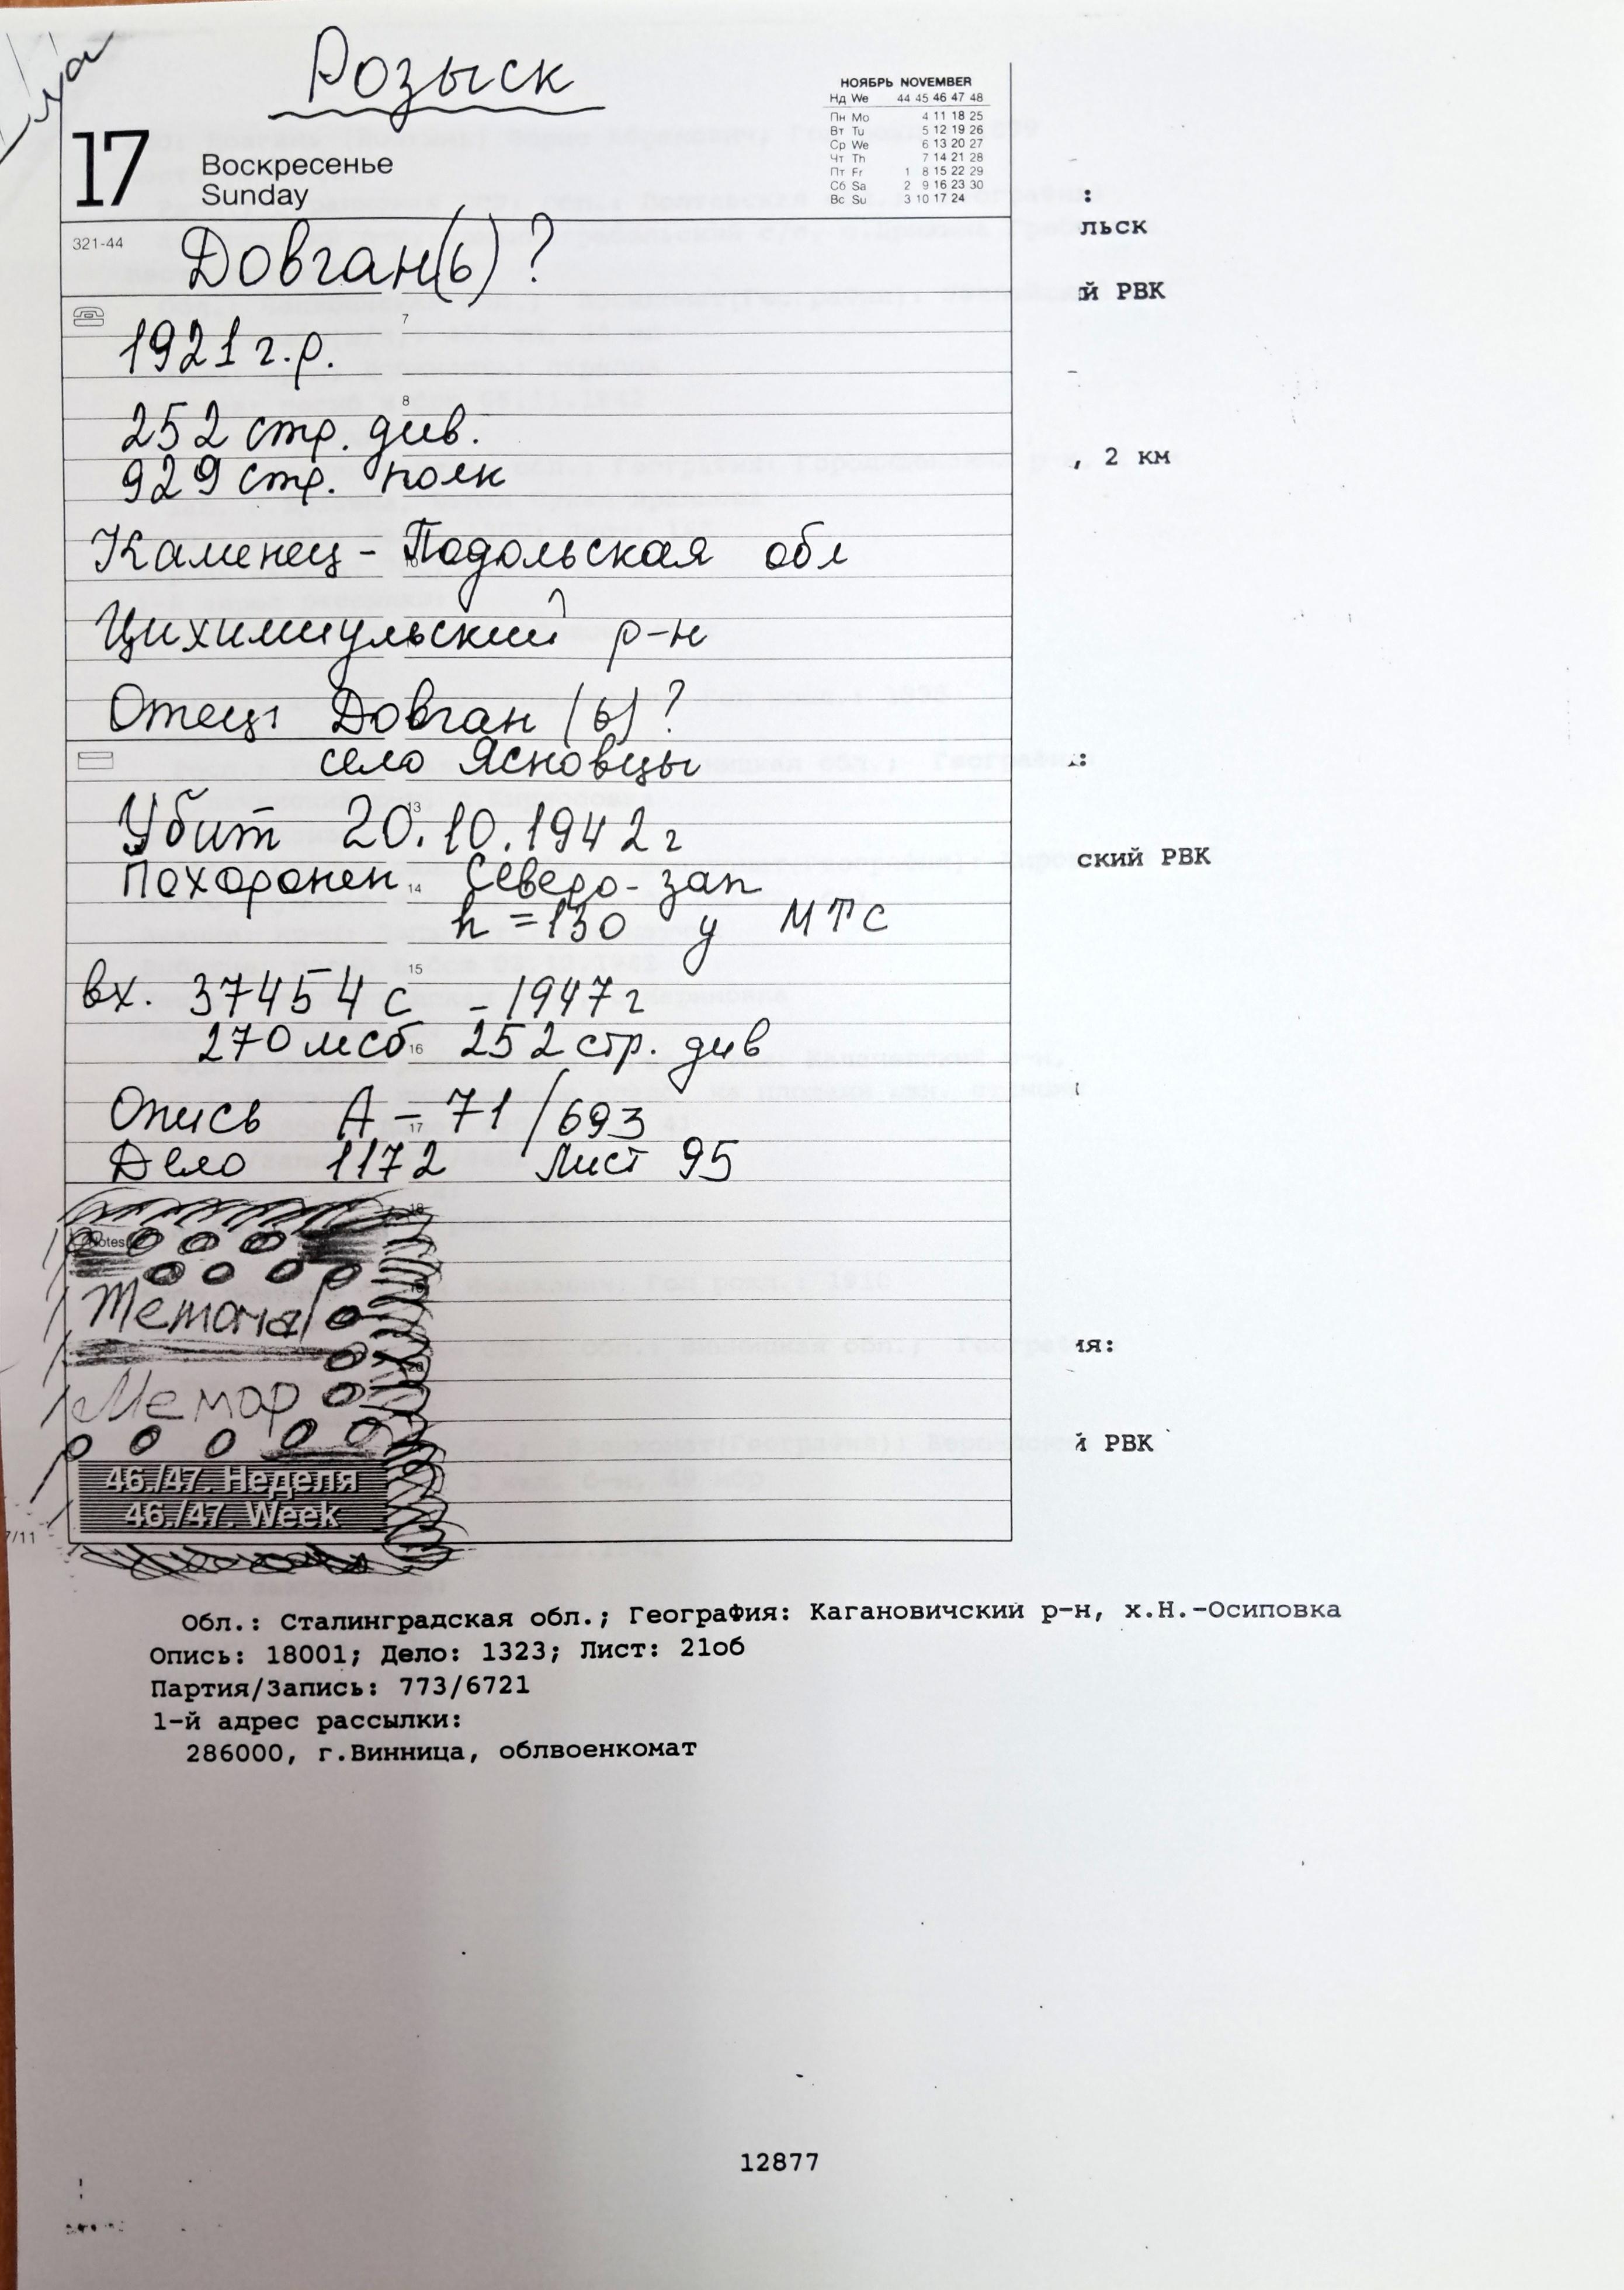 Розыск
НОЯБРЬ NOVEMBER
Нд We 44 45 46 47 48
Пн Mo 4 11 18 25
Вт Tu 5 12 19 26
Ср We 6 13 20 27
Чт Th 7 14 21 28
Пт Fr 1 8 15 22 29
Сб Sa 2 9 16 23 30
Вс Su 3 10 17 24
17 Воскресенье
Sunday
:
льск
321-44
Довган(ь)?
й РВК
7
1921 г.р.
8
252 стр. див.
, 2 км
929 стр. полк
Каменец-Подольская обл
Цихимиульский р-н
Отец: Довган (ь)?
село Ясновцы
:
13
Убит 20.10.1942 г
ский РВК
Похоронен 14 Северо-зап
h = 130 у МТС
15
вх. 37454 с - 1947 г
270 мсб 16 252 стр. див
Опись А - 71/693
17
Дело 1172 Лист 95
18
Notes
Мемориал
ия:
20
Мемор
й РВК
46./47. Неделя
46./47. Week
7/11
Обл.: Сталинградская обл.; География: Кагановичский р-н, х.Н.-Осиповка
Опись: 18001; Дело: 1323; Лист: 21об
Партия/Запись: 773/6721
1-й адрес рассылки:
286000, г.Винница, облвоенкомат
12877